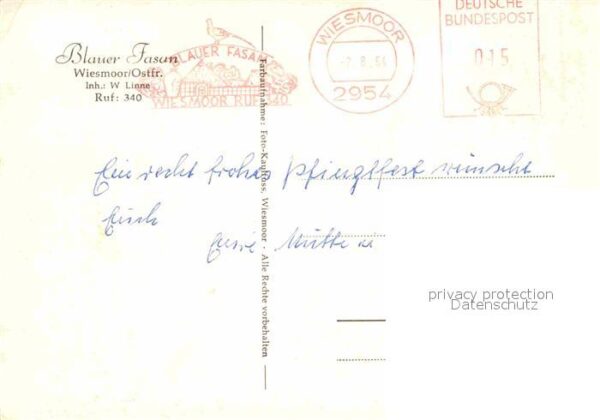 Blauer Fasan
Wiesmoor/Ostfr.
Inh.: W Linne
Ruf: 340
BLAUER FASAN
WIESMOOR RUF 340
WIESMOOR
2954
DEUTSCHE
BUNDESPOST
015
Farbaufnahme: Foto-Kauffoss, Wiesmoor - Alle Rechte vorbehalten
Ein recht frohes Pfingstfest wünscht
Euch
Eure Mutti
privacy protection
Datenschutz